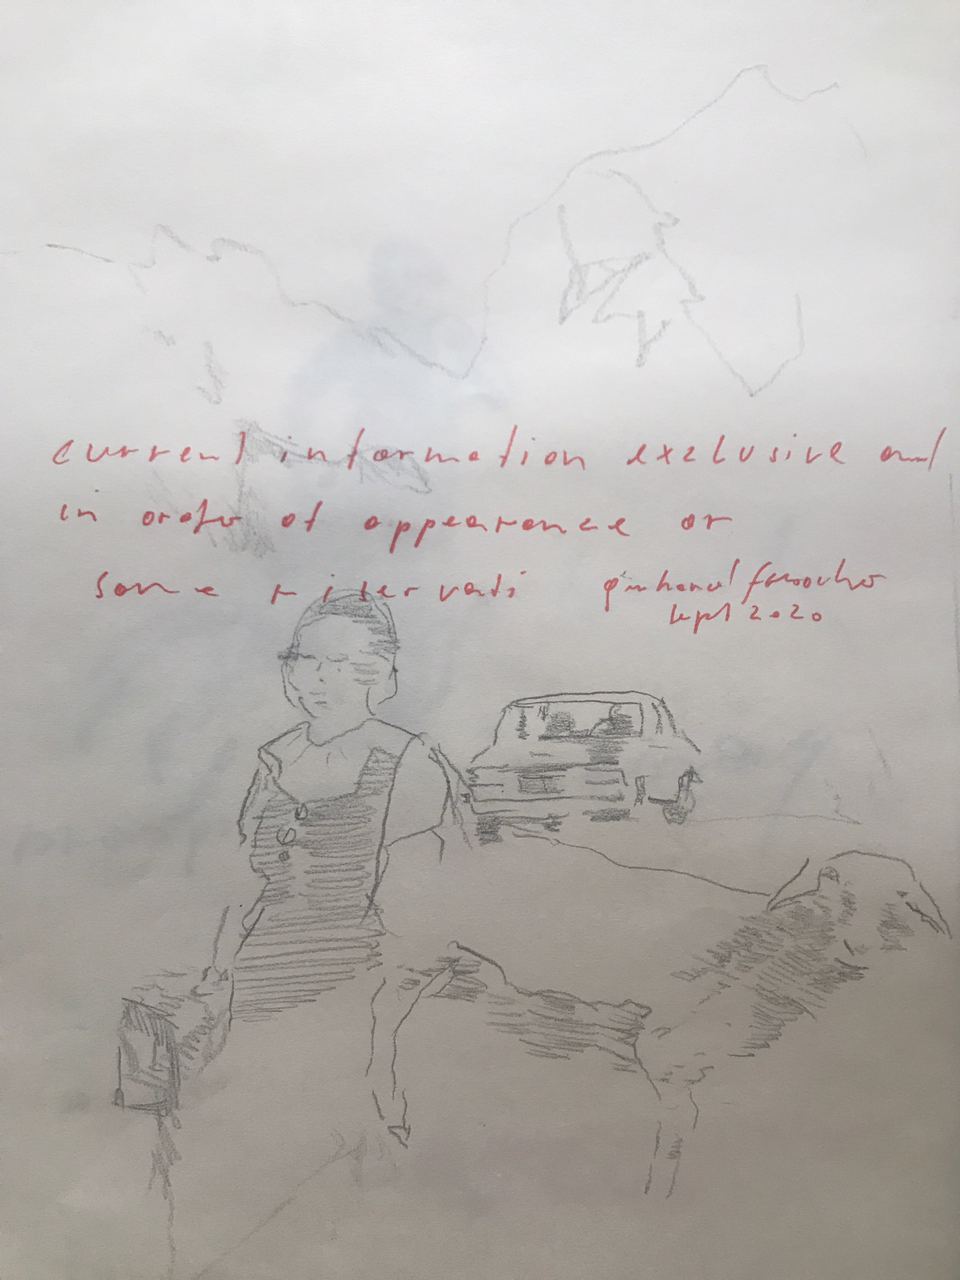 current information exclusive and
in order of appearance or
some riservati
sept 2020